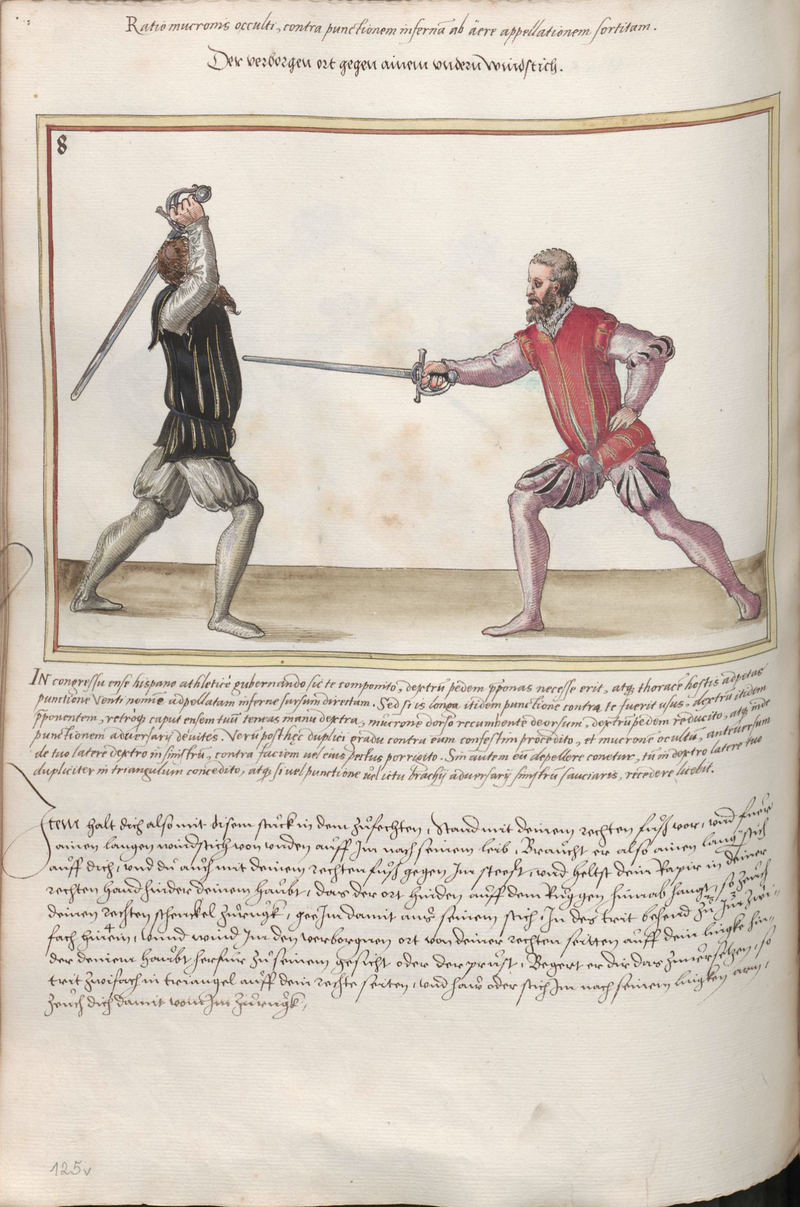 Ratio mucronis occulti, contra punctionem infernā ab äere appellationem sortitam.
Der verborgen ort gegen ainem undern windstich.
8
IN congressu ense hispano athletice gubernando sic te componito, dextrū pedem p̄ponas necesse erit, atq̄ thorace hostis adpetas
punctione venti nomine adpellatam inferne sursum directam. Sed si is longa itidem punctione contra te fuerit usus, dextrū itidem
p̄ponentem, retroq̄ caput ensem tuū teneas manu dextra, mucrone dorso recumbente deorsum, dextrū pedem reducito, atq̄ inde
punctionem adversarij devites. Verū post hęc duplici gradu contra eum confestim procedito, et mucrone occultū, anteversum
de tuo latere dextro in sinistrū, contra faciem vel eius pectus porrigito. Sin autem eū depellere conetur, tū in dextro latere tuo
dupliciter in triangulum concedito, atq̄ si vel punctione vel ictu brachij adversarij sinistrū sauciaris, recedere licebit.
Item halt dich also mit disem stuckh in dem zufechten, stand mit deinem rechten fuß vor, und fuer
ainen langen windstich von unden auff Im nach seinem leib, Braucht er also ainen lang stich
auff dich, und du auch mit deinem rechten fuß gegen Im steest, und heltst dein Rapir in deiner
rechten hand hinder deinem haubt, das der ort hinden auff dem Ruggen hinab hangt, so zeuch
deinen rechten schenckel zurugk, gee Im damit aus seinem stich, In des trit behend zů Im zwi-
fach hinein, unnd wind Im den verborgnen ort von deiner rechten seitten auff dein lingke hin-
der deinem haubt herfur zu seinem gesicht oder der prust, Begert er dir das zuversetzen, so
trit zwifach in triangel auff dein rechte seiten, und haw oder stich Im nach seinem lingken arm,
Zeuch dich damit von Im zurugk,
125v